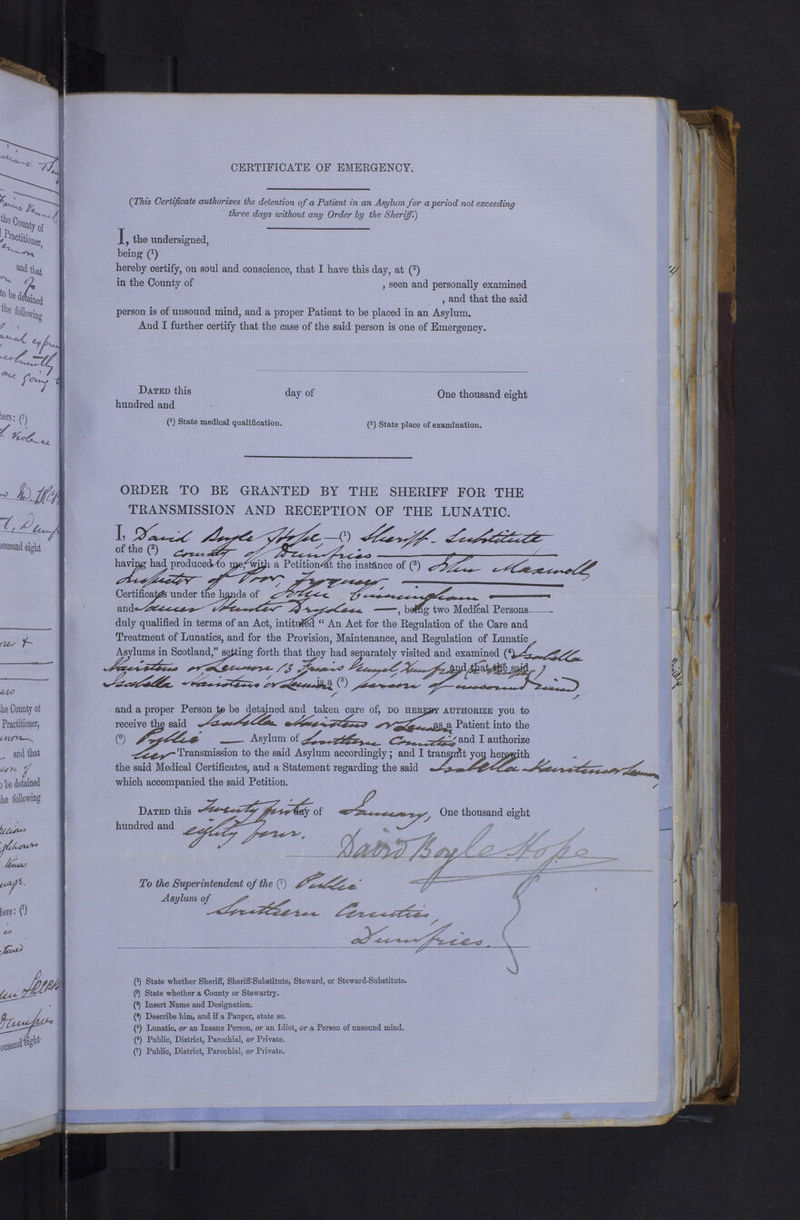 CERTIFICATE OF EMERGENCY.
(This Certificate authorizes the detention of a Patient in an Asylum for a period not exceeding
three days without any Order by the Sheriff.)
I, the undersigned,
being (¹)
hereby certify, on soul and conscience, that I have this day, at (²)
in the County of , seen and personally examined
, and that the said
person is of unsound mind, and a proper Patient to be placed in an Asylum.
And I further certify that the case of the said person is one of Emergency.
DATED this day of One thousand eight
hundred and
(¹) State medical qualification. (²) State place of examination.
ORDER TO BE GRANTED BY THE SHERIFF FOR THE
TRANSMISSION AND RECEPTION OF THE LUNATIC.
I, David Boyle Hope — (¹) Sheriff-Substitute
of the (²) County of Dumfries
having had produced to me, with a Petition at the instance of (³) John Maxwell,
Inspector of Poor,
Certificates under the hands of John Cunningham
and James Hunter Dryden —, being two Medical Persons
duly qualified in terms of an Act, intituled " An Act for the Regulation of the Care and
Treatment of Lunatics, and for the Provision, Maintenance, and Regulation of Lunatic
Asylums in Scotland," setting forth that they had separately visited and examined (⁴) Isabella
13 Friars Vennel, and that the said
Isabella is a (⁵) person of unsound mind,
and a proper Person to be detained and taken care of, DO HEREBY AUTHORIZE you to
receive the said Isabella as a Patient into the
(⁶) Public — Asylum of Southern Counties and I authorize
her Transmission to the said Asylum accordingly; and I transmit you herewith
the said Medical Certificates, and a Statement regarding the said Isabella
which accompanied the said Petition.
DATED this Twenty first day of January, One thousand eight
hundred and eighty four.
David Boyle Hope
To the Superintendent of the (⁷) Public
Asylum of
Southern Counties,
Dumfries.
(¹) State whether Sheriff, Sheriff-Substitute, Steward, or Steward-Substitute.
(²) State whether a County or Stewartry.
(³) Insert Name and Designation.
(⁴) Describe him, and if a Pauper, state so.
(⁵) Lunatic, or an Insane Person, or an Idiot, or a Person of unsound mind.
(⁶) Public, District, Parochial, or Private.
(⁷) Public, District, Parochial, or Private.